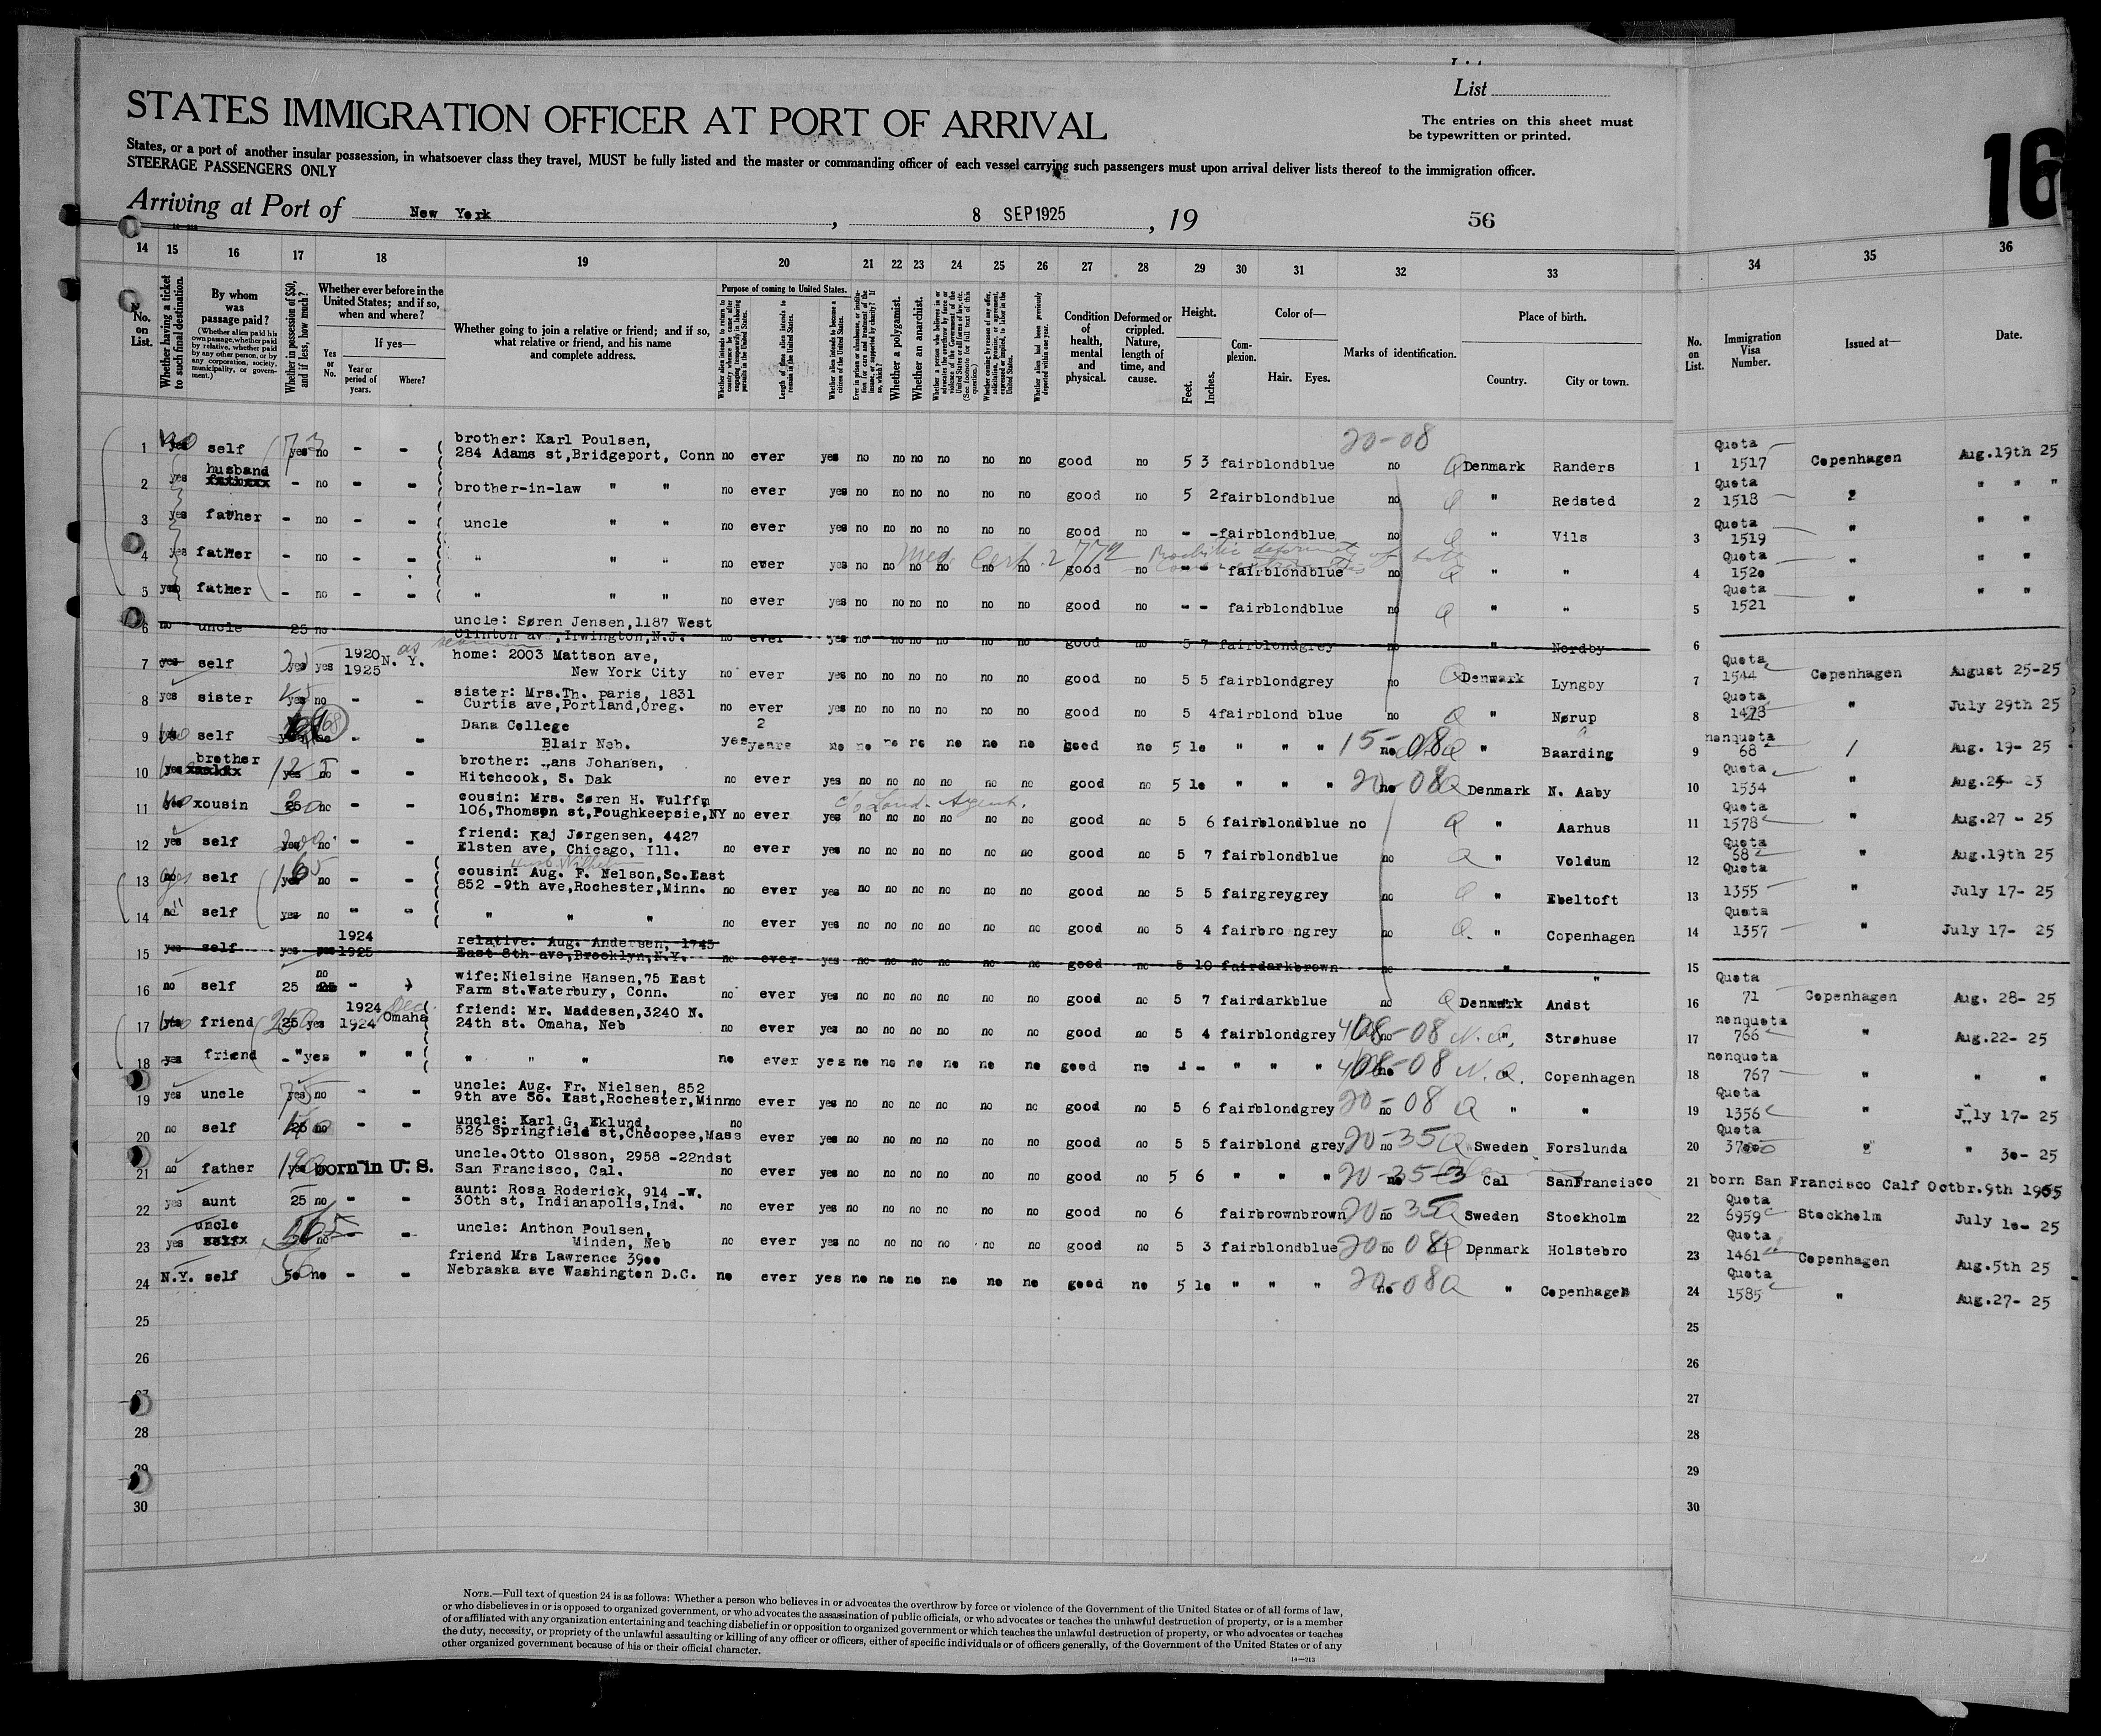 List
STATES IMMIGRATION OFFICER AT PORT OF ARRIVAL
The entries on this sheet must
be typewritten or printed.
States, or a port of another insular possession, in whatsoever class they travel, MUST be fully listed and the master or commanding officer of each vessel carrying such passengers must upon arrival deliver lists thereof to the immigration officer.
STEERAGE PASSENGERS ONLY
16
Arriving at Port of New York, 8 SEP 1925, 19 56
14 15 16 17 18 19 20 21 22 23 24 25 26 27 28 29 30 31 32 33 34 35 36
No. on List.
Whether having a ticket to such final destination.
By whom was passage paid?
(Whether alien paid his own passage, whether paid by relative, whether paid by any other person, or by any corporation, society, municipality, or government.)
Whether in possession of $50, and if less, how much?
Whether ever before in the United States; and if so, when and where?
Yes or No.
If yes—
Year or period of years.
Where?
Whether going to join a relative or friend; and if so, what relative or friend, and his name and complete address.
Purpose of coming to United States.
Whether alien intends to return to country whence he came after engaging temporarily in laboring pursuits in the United States.
Length of time alien intends to remain in the United States.
Whether alien intends to become a citizen of the United States.
Whether a polygamist.
Whether an anarchist.
Condition of health, mental and physical.
Deformed or crippled. Nature, length of time, and cause.
Height.
Feet. Inches.
Complexion.
Color of—
Hair. Eyes.
Marks of identification.
Place of birth.
Country. City or town.
No. on List.
Immigration Visa Number.
Issued at—
Date.
1 yes self yes no - - brother: Karl Poulsen, 284 Adams st,Bridgeport, Conn no ever yes no no no no no no good no 5 3 fair blond blue 20-08 no Q Denmark Randers 1 Quota 1517 Copenhagen Aug.19th 25
2 yes husband - no - - brother-in-law " " no ever yes no no no no no no good no 5 2 fair blond blue no Q " Redsted 2 Quota 1518 " " " "
3 yes father - no - - uncle " " no ever yes no no no no no no good no - - fair blond blue no Q " Vils 3 Quota 1519 " " "
4 yes father - no - - " " " no ever yes no no no no no no good no - - fair blond blue no Q " " 4 Quota 1520 " " "
Med Cert.
5 yes father - no - - " " " no ever yes no no no no no no good no - - fair blond blue no Q " " 5 Quota 1521 " " "
6 no uncle 25 no uncle: Søren Jensen,1187 West Clinton av,Irwington,N.J. no ever yes no no no no no no good no 5 7 fair blond grey no " Nordby 6
7 yes self yes yes 1920 1925 N. Y. home: 2003 Mattson ave, New York City no ever yes no no no no no no good no 5 5 fair blond grey no Q Denmark Lyngby 7 Quota 1544 Copenhagen August 25-25
8 yes sister yes no - - sister: Mrs.Th. paris, 1831 Curtis ave,Portland,Oreg. no ever yes no no no no no no good no 5 4 fair blond blue no Q " Nørup 8 Quota " July 29th 25
9 self - - Dana College Blair Neb. yes 2 years no no no no no no no good no 5 10 " " " 15-08 no " Baarding 9 nonquota 68 Aug. 19- 25
10 yes brother yes no - - brother: Hans Johansen, Hitchcook, S. Dak no ever yes no no no no no no good no 5 10 " " " 20-08 no Q Denmark N. Aaby 10 Quota 1534 "
11 xousin 25 no - - cousin: Mrs. Søren H. Wulffm 106,Thomson st,Poughkeepsie,NY no ever yes no no no no no no good no 5 6 fair blond blue no Q " Aarhus 11 Quota 1578 " Aug.27 - 25
c/o Land. Agent.
12 yes self yes no - - friend: Kaj Jørgensen, 4427 Elsten ave, Chicago, Ill. no ever yes no no no no no no good no 5 7 fair blond blue no Q " Voldum 12 Quota 68 " Aug.19th 25
13 no self yes no - - cousin: Aug. F. Nelson,So.East 852 -9th ave,Rochester,Minn. no ever yes no no no no no no good no 5 5 fair grey grey no Q " Ebeltoft 13 Quota 1355 " July 17- 25
14 no self yes no - - " " " no ever yes no no no no no no good no 5 4 fair bro ngrey no Q. " Copenhagen 14 Quota 1357 " July 17- 25
15 yes self yes yes 1924 1925 relative: Aug. Andersen, 1745 East 8th ave,Brooklyn,N.Y. no ever yes no no no no no no good no 5 10 fair dark brown no " " 15
16 no self 25 no - wife:Nielsine Hansen,75 East Farm st.Waterbury, Conn. no ever yes no no no no no no good no 5 7 fair dark blue no Q Denmark Andst 16 Quota 71 Copenhagen Aug. 28- 25
17 yes friend 25 yes 1924 1924 Omaha friend: Mr. Maddesen,3240 N. 24th st. Omaha, Neb no ever yes no no no no no no good no 5 4 fair blond grey no N. Q. " Strøhuse 17 nonquota 766 " Aug.22- 25
18 yes friend - " yes " " " " " no ever yes no no no no no no good no - - " " " no N. Q. " Copenhagen 18 nonquota 767 " " "
19 yes uncle yes no - - uncle: Aug. Fr. Nielsen, 852 9th ave So. East,Rochester,Minn no ever yes no no no no no no good no 5 6 fair blond grey 20-08 no Q " " 19 Quota 1356 " July 17- 25
20 no self no uncle: Karl G. Eklund, 526 Springfield st,Checopee,Mass no ever yes no no no no no no good no 5 5 fair blond grey 20-35 no Q Sweden Forslunda 20 Quota " " 30- 25
21 no father yes born in U. S. uncle.Otto Olsson, 2958 -22ndst San Francisco, Cal. no ever yes no no no no no no good no 5 6 " " " 20-35-3 no Cal SanFrancisco 21 born San Francisco Calf Octbr.9th
22 yes aunt 25 no - - aunt: Rosa Roderick, 914 -W. 30th st, Indianapolis,Ind. no ever yes no no no no no no good no 6 fair brown brown 20-35 no Q Sweden Stockholm 22 Quota 6959 Stockholm July 10- 25
23 yes uncle no - - uncle: Anthon Poulsen, Minden, Neb no ever yes no no no no no no good no 5 3 fair blond blue 20-08 no Q Denmark Holstebro 23 Quota 1461 Copenhagen Aug.5th 25
24 N.Y. self 50 no - - friend Mrs Lawrence 3900 Nebraska ave Washington D.C. no ever yes no no no no no no good no 5 10 " " " 20-08 no Q " Copenhagen 24 Quota 1585 " Aug.27- 25
25 25
26 26
27 27
28 28
29 29
30 30
NOTE.—Full text of question 24 is as follows: Whether a person who believes in or advocates the overthrow by force or violence of the Government of the United States or of all forms of law,
or who disbelieves in or is opposed to organized government, or who advocates the assassination of public officials, or who advocates or teaches the unlawful destruction of property, or is a member
of or affiliated with any organization entertaining and teaching disbelief in or opposition to organized government or which teaches the unlawful destruction of property, or who advocates or teaches
the duty, necessity, or propriety of the unlawful assaulting or killing of any officer or officers, either of specific individuals or of officers generally, of the Government of the United States or of any
other organized government because of his or their official character.
14—213